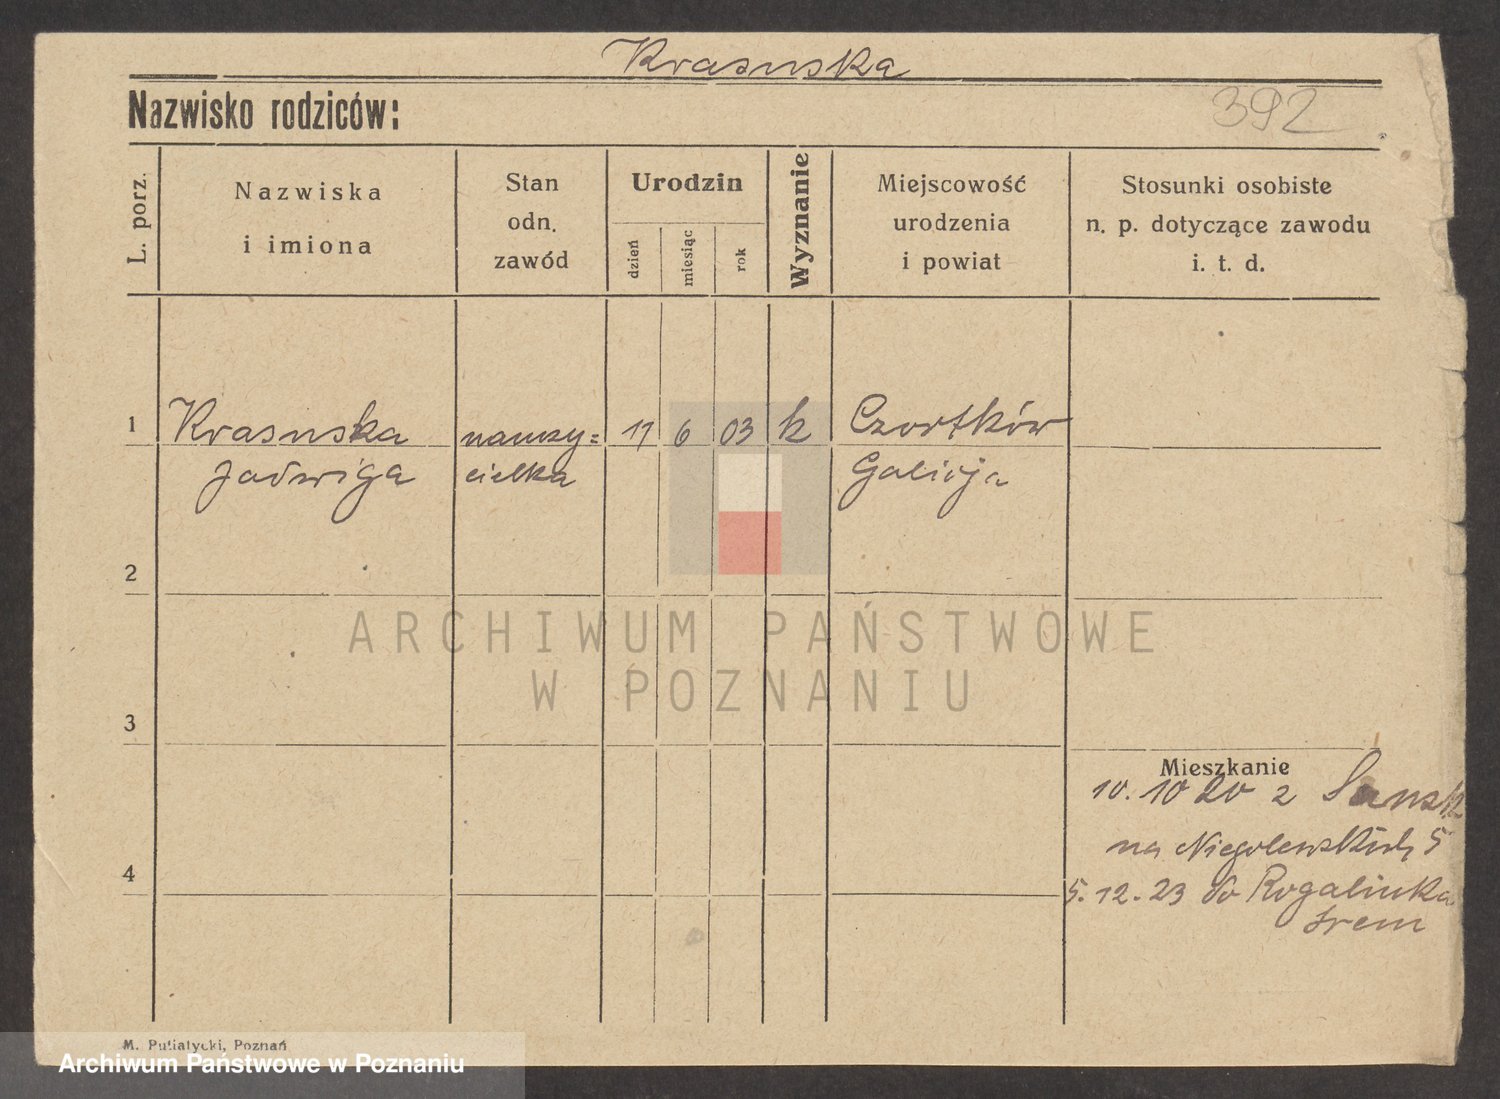 Krasuska
Nazwisko rodziców:
392
L. porz.
Nazwiska
i imiona
Stan
odn.
zawód
Urodzin
dzień
miesiąc
rok
Wyznanie
Miejscowość
urodzenia
i powiat
Stosunki osobiste
n. p. dotyczące zawodu
i. t. d.
1
Krasuska
Jadwiga
nauczy=
cielka
11
6
03
k
Czortków
Galicja
2
3
4
ARCHIWUM PAŃSTWOWE
W POZNANIU
Mieszkanie
10. 10 20 z
na Niegolewskich 5
5. 12. 23 do Rogalinka
Srem
M. Putiatycki, Poznań
Archiwum Państwowe w Poznaniu